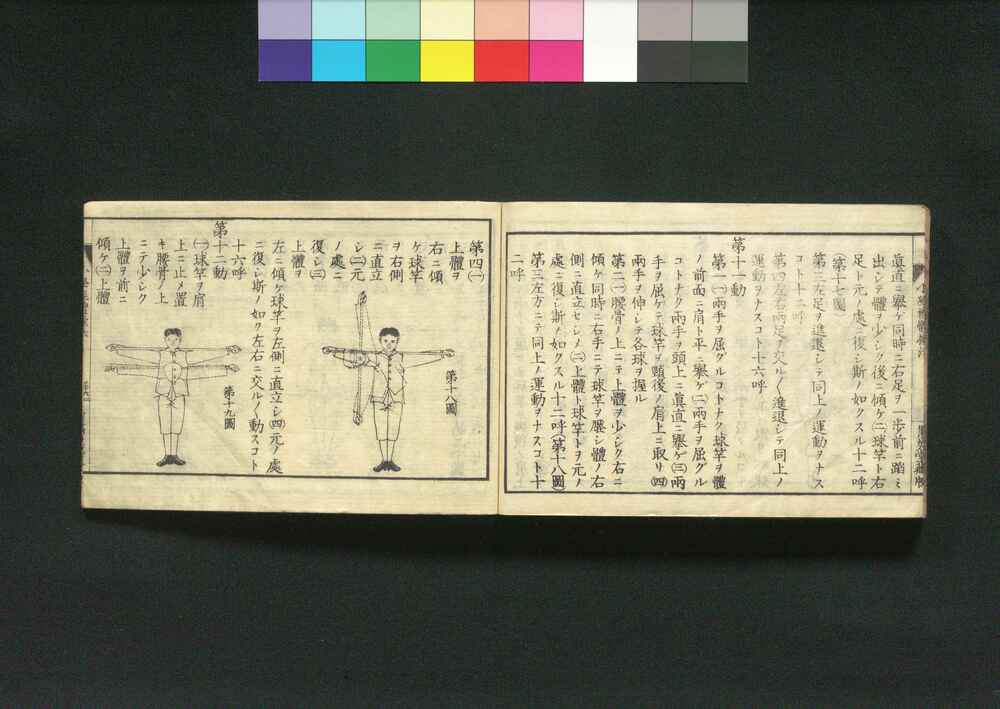 眞直ニ擧ケ同時ニ右足ヲ一歩前ニ踏ミ
出シテ體ヲ少シク後ニ傾ケ㈡球竿ト右
足ト元ノ處ニ復シ斯ノ如クスル十二呼
(第十七圖)
第三左足ヲ進退シテ同上ノ運動ヲナス
コト十二呼
第四左右両足ヲ交ル〱進退シテ同上ノ
運動ヲナスコト十六呼
第十一動
第一㈠兩手ヲ屈グルコトナク球竿ヲ體
ノ前面ニ肩ト平ニ擧ゲ㈡兩手ヲ屈グル
コトナク兩手ヲ頭上ニ眞直ニ擧ゲ㈢兩
手ヲ屈ケテ球竿ヲ頸後ノ肩上ニ取リ㈣
兩手ヲ伸シテ各球ヲ握ル
第二㈠腰骨ノ上ニテ上體ヲ少シク右ニ
傾ケ同時ニ右手ニテ球竿ヲ壓シ體ノ右
側ニ直立セシメ㈡上體ト球竿トヲ元ノ
處ニ復シ斯ノ如クスル十二呼(第十八圖)
第三左方ニテ同上ノ運動ヲナスコト十
二呼
第四㈠
上體ヲ
右ニ傾
ケ球竿
ヲ右側
ニ直立
シ㈡元
ノ處ニ
復シ㈢
上體ヲ
第十八圖
左ニ傾ケ球竿ヲ左側ニ直立シ㈣元ノ處
ニ復シ斯ノ如ク左右ニ交ル〱動スコト
十六呼
第十二動
㈠球竿ヲ肩
上ニ止メ置
キ腰骨ノ上
ニテ少シク
上體ヲ前ニ
傾ケ㈡上體
第十九圖